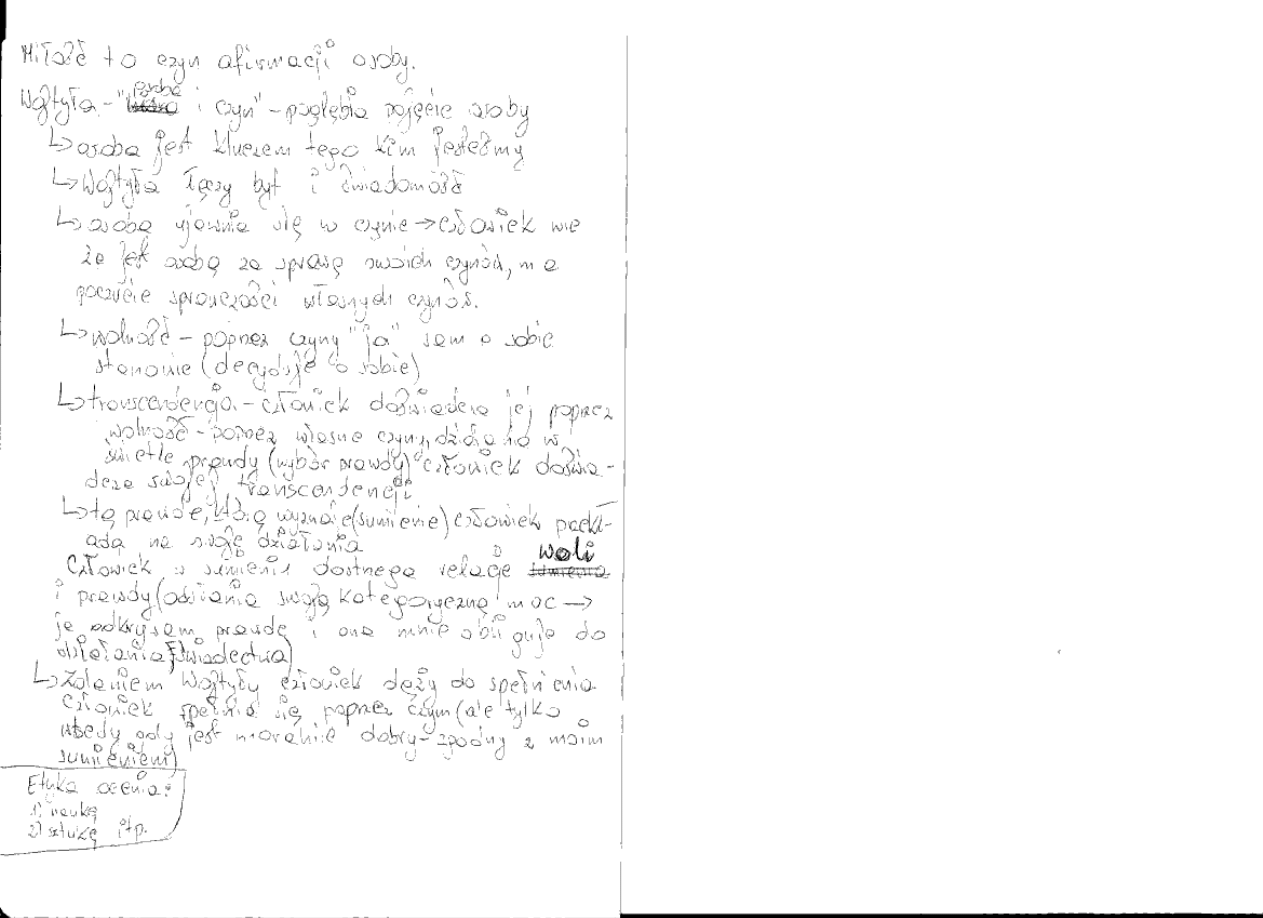 Miłość to czyn afirmacji osoby.
Wojtyła - "osoba i czyn" - pogłębia pojęcie osoby
↳ osoba jest kluczem tego kim jesteśmy
↳ Wojtyła łączy byt i świadomość
↳ osoba ujawnia się w czynie → człowiek wie
że jest osobą za sprawą swoich czynów, ma
poczucie sprawczości własnych czynów.
↳ wolność - poprzez czyny "ja" sam o sobie
stanowię (decyduję o sobie)
↳ transcendencja - człowiek doświadcza jej poprzez
wolność - poprzez własne czyny, działania w
świetle prawdy (wybór prawdy) człowiek doświa-
dcza swojej transcendencji
↳ tą prawdę, którą wyznaje (sumienie) człowiek przekł-
ada na swoje działania
Człowiek w sumieniu dostrzega relację woli
i prawdy (odsłania swoją kategoryczną moc →
ja odkryłem prawdę i ona mnie obliguje do
działania, świadectwa)
↳ Zdaniem Wojtyły człowiek dąży do spełnienia
Człowiek spełnia się poprzez czyn (ale tylko
wtedy gdy jest moralnie dobry - zgodny z moim
sumieniem)
Etyka ocenia:
1) naukę
2) sztukę itp.